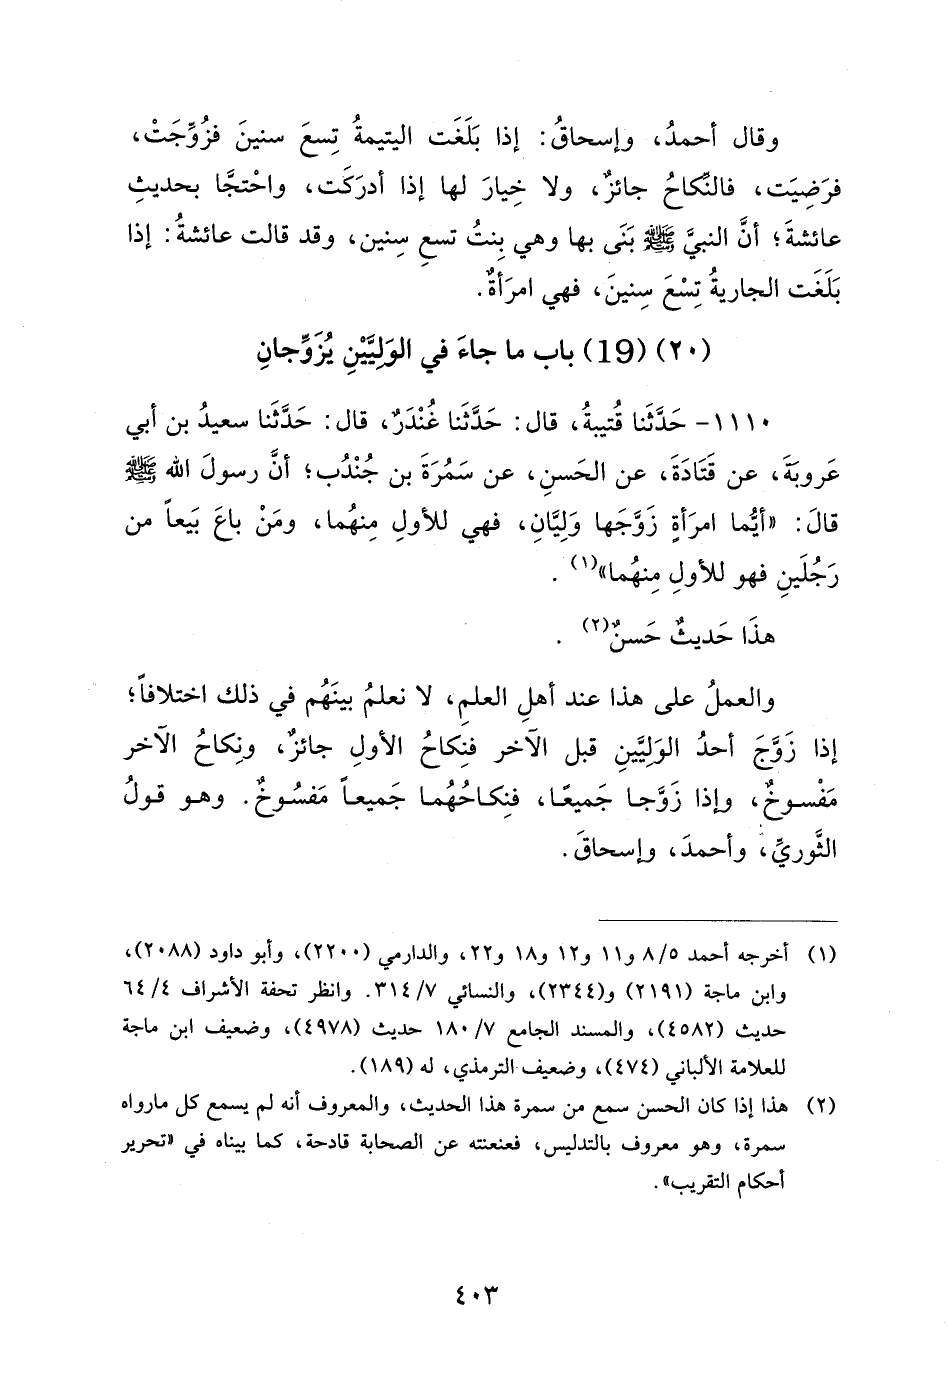 وقال أحمدُ، وإسحاقُ: إذا بَلَغَت اليتيمةُ تِسعَ سنينَ فزُوِّجَتْ،
فرَضِيَت، فالنِّكاحُ جائزٌ، ولا خِيارَ لها إذا أدرَكَت، واحْتجَّا بحديثِ
عائشةَ؛ أنَّ النبيَّ ﷺ بَنَى بها وهي بِنتُ تسعِ سِنين، وقد قالت عائشةُ: إذا
بَلَغَت الجاريةُ تِسْعَ سِنينَ، فهي امرَأةٌ.
(٢٠) (19) باب ما جاءَ في الوَلِيَّيْنِ يُزَوِّجانِ
١١١٠- حَدَّثَنا قُتيبةُ، قال: حَدَّثَنا غُنْدَرٌ، قال: حَدَّثَنا سعيدُ بن أبي
عَروبَةَ، عن قَتَادَةَ، عن الحَسنِ، عن سَمُرَةَ بن جُنْدُب؛ أنَّ رسولَ الله ﷺ
قالَ: «أيُّما امرَأةٍ زَوَّجَها وَلِيَّانِ، فهي للأولِ مِنهُما، ومَنْ باعَ بَيعاً من
رَجُلَينِ فهو للأولِ مِنهُما»(١) .
هذَا حَديثٌ حَسنٌ(٢) .
والعملُ على هذا عند أهلِ العلمِ، لا نعلمُ بينَهُم في ذلك اختلافاً؛
إذا زَوَّجَ أحدُ الوَلِيَّينِ قبل الآخر فنِكاحُ الأولِ جائزٌ، ونِكاحُ الآخر
مَفْسوخٌ، وإذا زَوَّجا جَميعًا، فنِكاحُهُما جَميعاً مَفسُوخٌ. وهو قولُ
الثَّوريِّ، وأحمدَ، وإسحاقَ.
(١) أخرجه أحمد ٥/ ٨ و١١ و١٢ و١٨ و٢٢، والدارمي (٢٢٠٠)، وأبو داود (٢٠٨٨)،
وابن ماجة (٢١٩١) و(٢٣٤٤)، والنسائي ٧/ ٣١٤. وانظر تحفة الأشراف ٤/ ٦٤
حديث (٤٥٨٢)، والمسند الجامع ٧/ ١٨٠ حديث (٤٩٧٨)، وضعيف ابن ماجة
للعلامة الألباني (٤٧٤)، وضعيف الترمذي، له (١٨٩).
(٢) هذا إذا كان الحسن سمع من سمرة هذا الحديث، والمعروف أنه لم يسمع كل مارواه
سمرة، وهو معروف بالتدليس، فعنعنته عن الصحابة قادحة، كما بيناه في «تحرير
أحكام التقريب».
٤٠٣